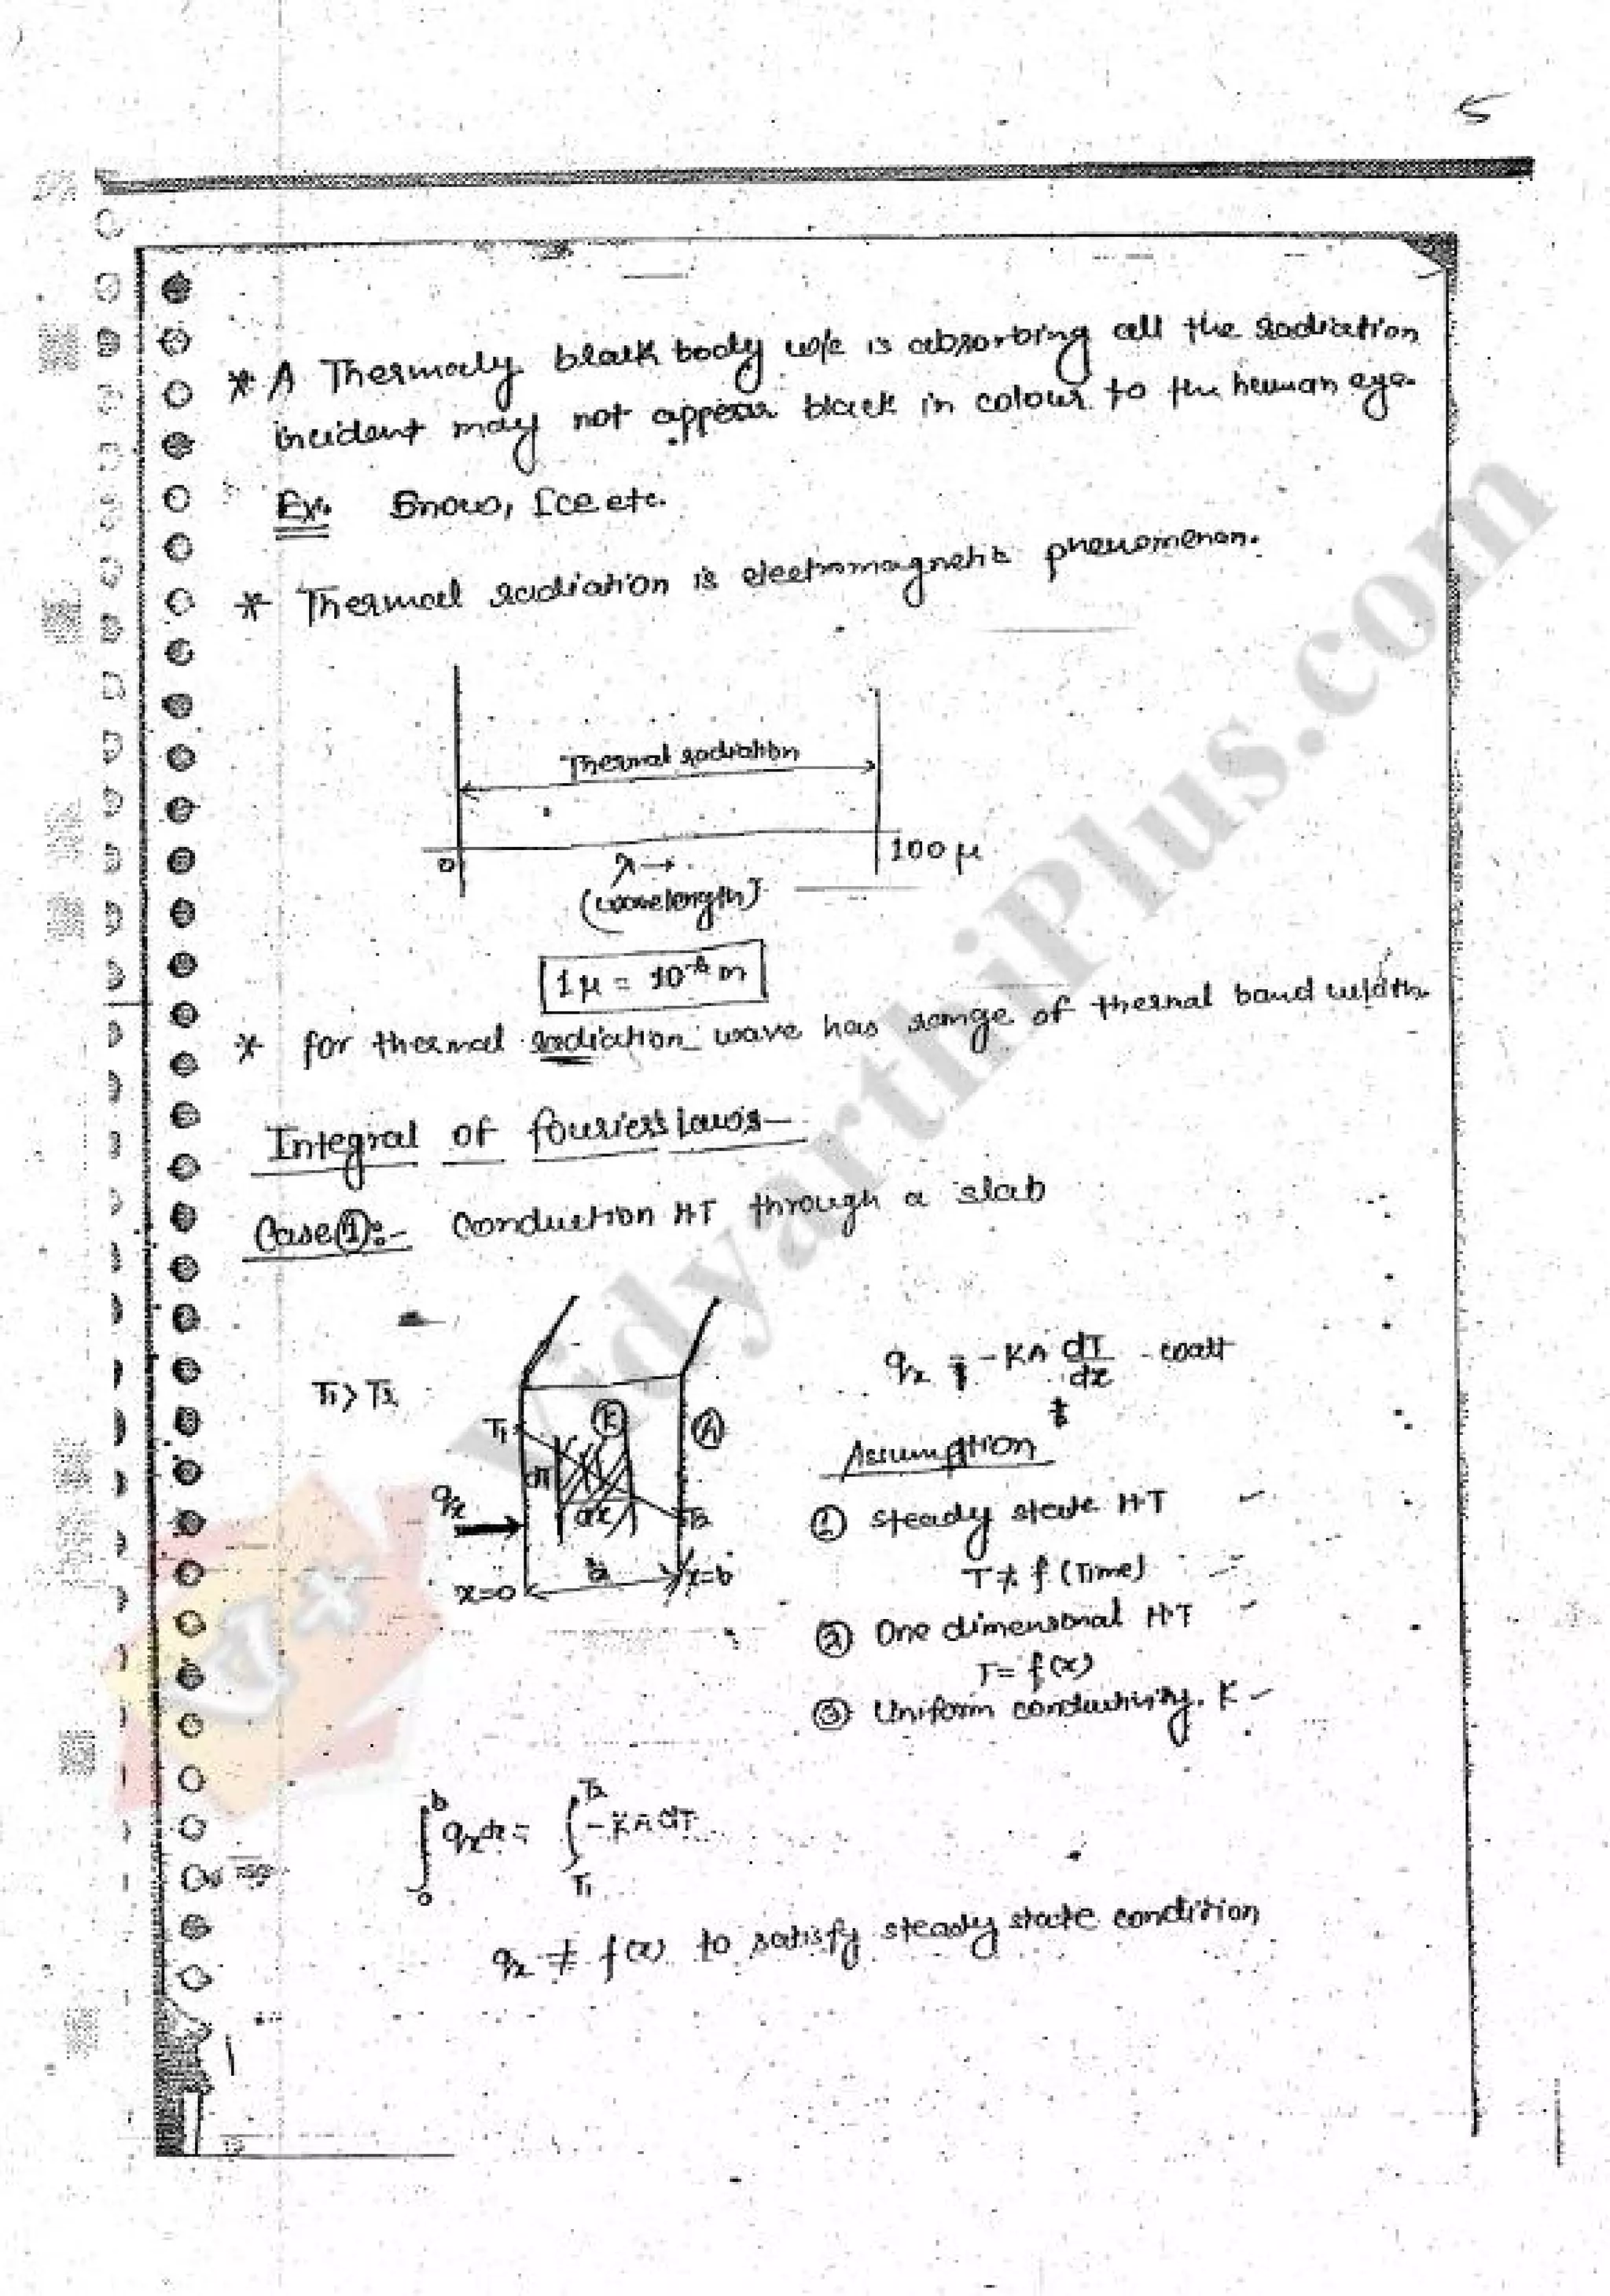 5
* A Thermaly black body w/c is absorbing all the radiation
incident may not appear black in colour to the human eye.
Ex:. Snow, Ice etc.
* Thermal radiation is electromagnetic phenomenon.
Thermal radiation
0 λ→ 100 μ
(wavelength)
1μ = 10⁻⁶ m
* for thermal radiation wave has range of thermal band width.
Integral of fourier's Laws–
Case①:- Conduction HT through a slab
T₁ > T₂
T₁ K A
dT
dx T₂
qx
x=0 b x=b
qx = -KA dT/dx watt
Assumption
① steady state HT
T ≠ f (Time)
② One dimensional HT
T= f(x)
③ Uniform conductivity. K
∫₀ᵇ qx dx = ∫_T₁^T₂ -KA dT
qx ≠ f(x) to satisfy steady state condition
VidyarthiPlus.com
V+